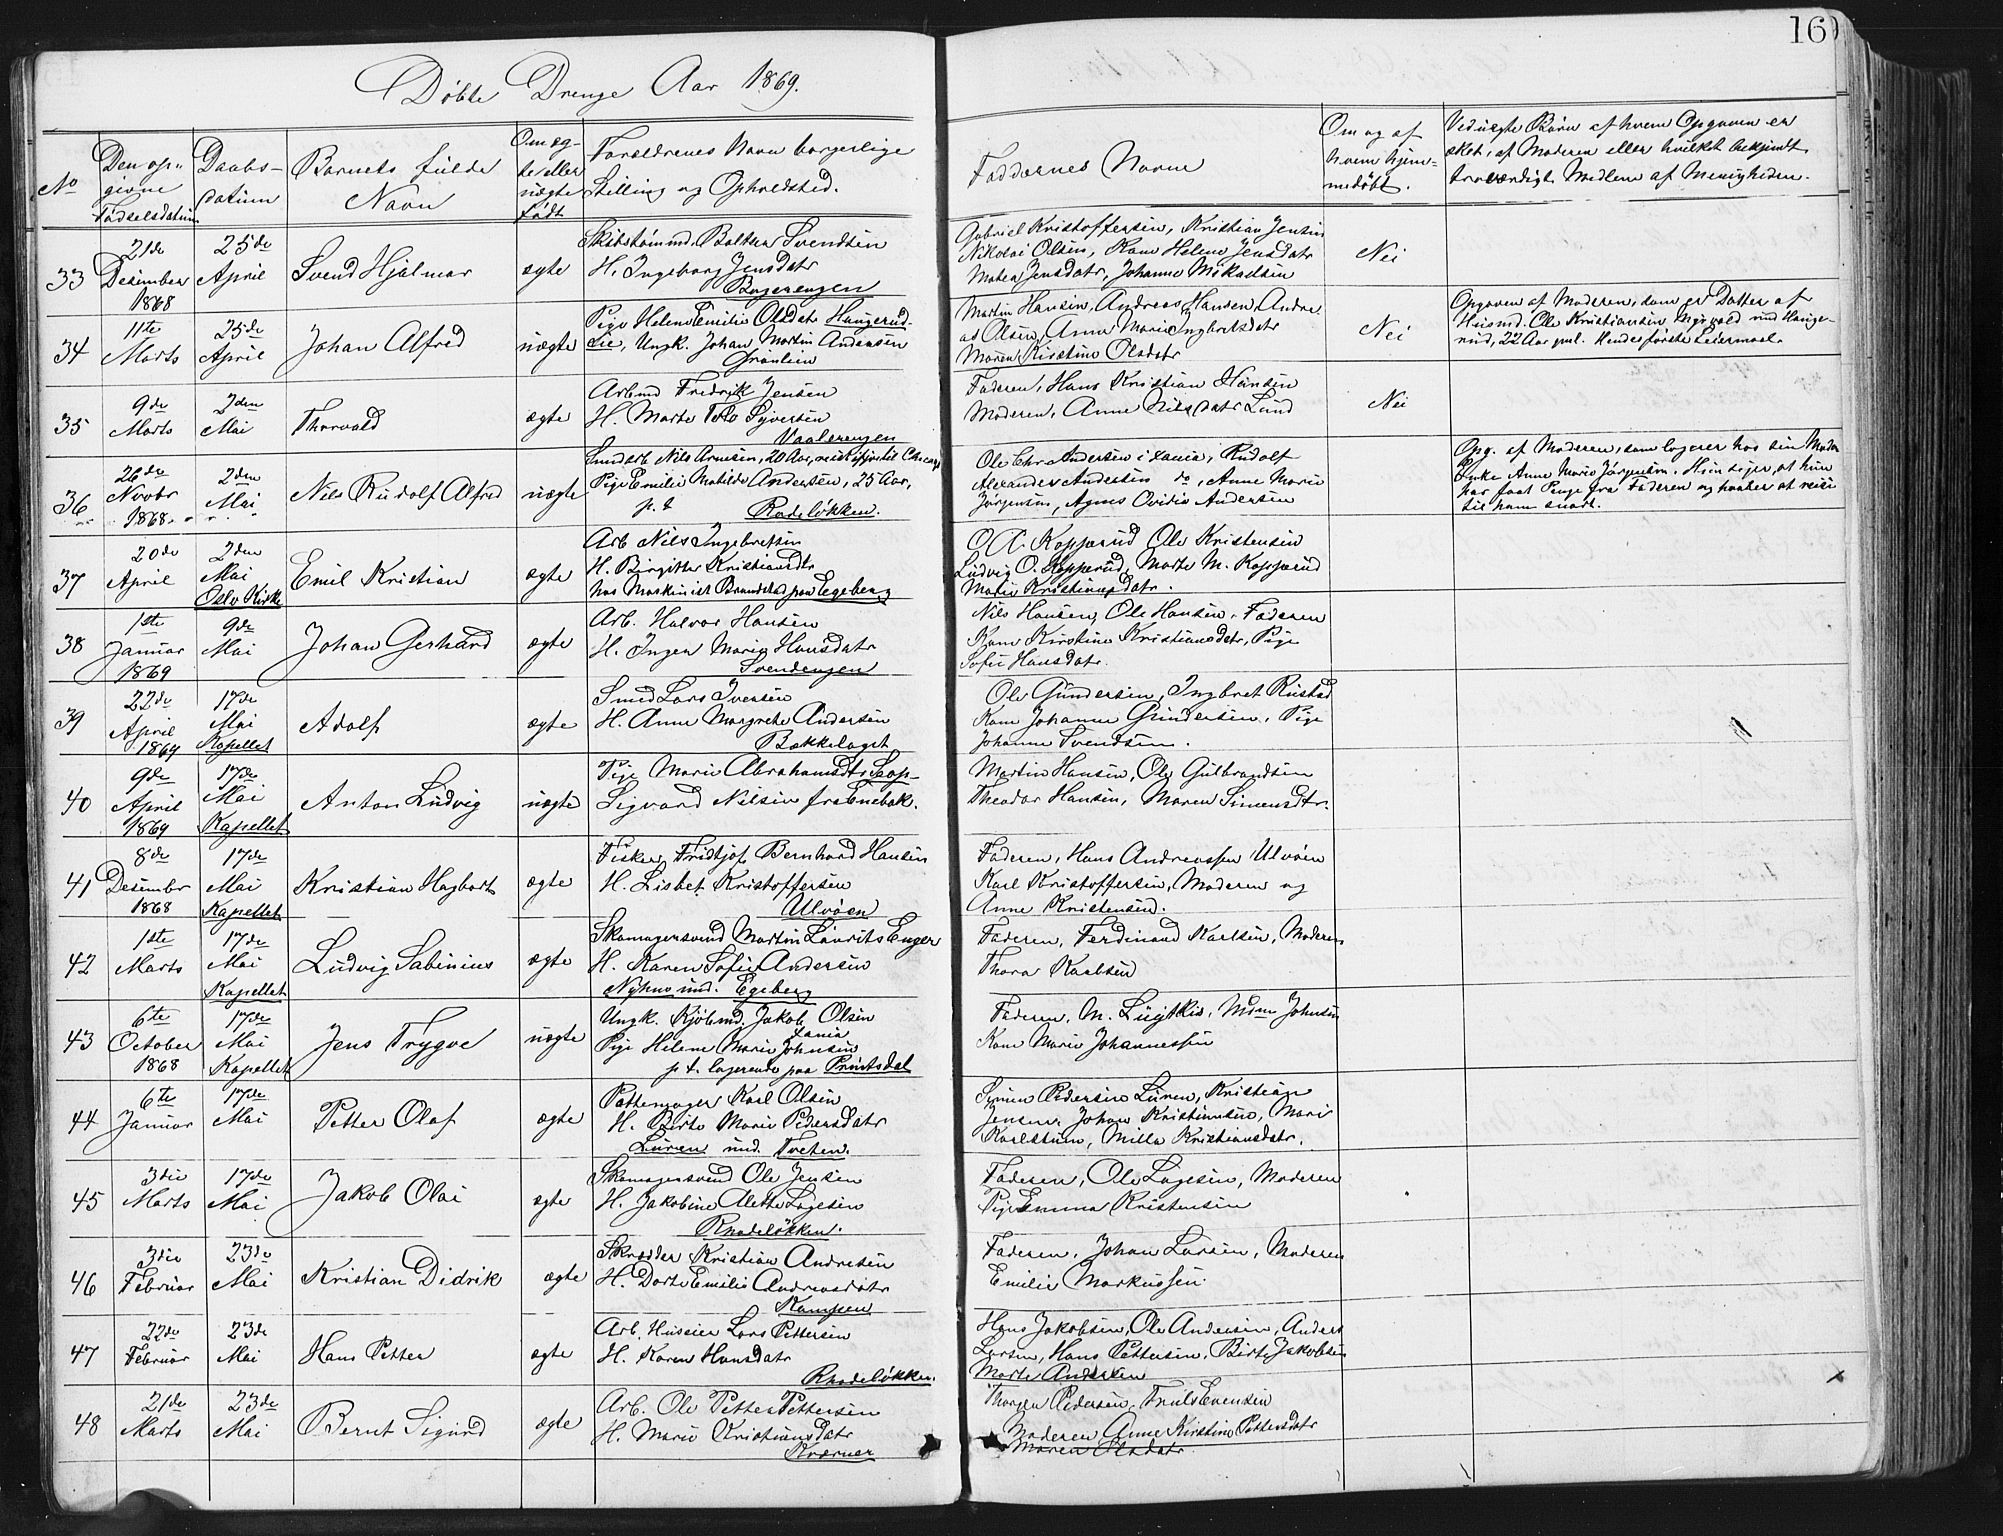 16
Døbte Drenge Aar 1869.
No
Den op-
givne
Fødselsdatum
Daabs-
datum
Barnets fulde
Navn
Om æg-
te eller
uægte
født
Forældrenes Navn borgerlige
Stilling og Opholdsted.
Faddernes Navne
Om og af
hvem hjem-
medøbt.
Ved uægte Børn af hvem Opgaven er
sket, af Moderen eller hvilket bekjendt
troværdigt Medlem af Menigheden.
33
21de
Desember
1868
25de
April
Svend Hjalmar
ægte
Skibstømmd. Baltser Svendsen
H. Ingeborg Jensdatr
Bogerengen
Gabriel Kristoffersen, Kristian Jensen
Nikolai Olsen, Kone Helene Jensdatr
Matea Jensdatr, Johanne Mikaelsen
Nei
34
11te
Marts
25de
April
Johan Alfred
uægte
Pige Helene Emilie Olsdatr Haugerud-
eie, Ungk. Johan Martin Andersen
Grønlien
Martin Hansen, Andreas Hansen, Andre
as Olsen, Anne Marie Ingbretsdatr
Maren Kirstine Olsdatr
Nei
Opgaven af Moderen, som er Datter af
Husmd. Ole Kristiansen Myrvold und Hauge-
rud, 22 Aar gml. Hendes første Leiermaal.
35
9de
Marts
2den
Mai
Thorvald
ægte
Arbmd Fredrik Jensen
H. Marte Syversen
Vaalerengen
Faderen, Hans Kristian Hansen
Moderen, Anne Nilsdatr Lund
Nei
36
26de
Novbr
1868
2den
Mai
Nils Rudolf Alfred
uægte
Smedarb Nils Arnesen, 20 Aar, reist til Chicago
Pige Emilie Matilde Andersen, 25 Aar,
p. t Rodeløkken.
Ole Chr Andersen i Xania, Rudolf
Alexander Andersen do, Anne Marie
Jørgensen, Agnes Ovidia Andersen
Opg. af Moderen, som logerer hos sin Moder
Enke Anne Marie Jørgensen. Hun siger, at hun
har faat Penge fra Faderen og haaber at reise
til ham snart.
37
20de
April
2den
Mai
Oslo Kirke
Emil Kristian
ægte
Arb Nils Ingebretsen
H. Birgitte Kristiansdtr
hos Maskinist Brandstad paa Egeberg
O. A. Kopperud Ole Kristensen
Ludvig O. Kopperud, Marte M. Kopperud
Matie Kristiansdatr.
38
1ste
Januar
1869
9de
Mai
Johan Gerhard
ægte
Arb. Halvor Hansen
H. Inger Marie Hansdatr
Svendengen
Nils Hansen, Ole Hansen, Faderen
Kone Kirstine Kristiansdatr, Pige
Sofie Hansdatr.
39
22de
April
1869
17de
Mai
Kapellet
Adolf
ægte
Smed Lars Iversen
H. Anne Margrete Andersen
Bækkelaget
Ole Gundersen, Ingbret Rustad
Kone Johanne Gundersen, Pige
Johanne Svendsen.
40
9de
April
1869
17de
Mai
Kapellet
Anton Ludvig
uægte
Pige Marie Abrahamsdtr
Sigvard Nilsen fra Enebak.
Martin Hansen, Ole Gulbrandsen
Theodor Hansen, Maren Simensdtr.
41
8de
Desembr
1868
17de
Mai
Kapellet
Kristian Hagbart
ægte
Fisker Fridtjof Bernhard Hansen
H. Lisbet Kristoffersen
Ulvøen
Faderen, Hans Andreassen Ulvøen
Karl Kristoffersen, Moderen og
Anne Kristensen.
42
1ste
Marts
17de
Mai
Kapellet
Ludvig Sabinius
ægte
Skomagersvend Martin Laurits Enger
H. Karen Sofie Andersen
Nyhus und. Egeberg
Faderen, Ferdinand Karlsen, Moderen
Thora Karlsen
43
6te
October
1868
17de
Mai
Kapellet
Jens Trygve
uægte
Ungk. Kjøbmd. Jakob Olsen
Xania
Pige Helene Marie Johnsen
p t. logerende paa Printsdal
Faderen, M. Johnsen
Kone Marie Johannessen
44
6te
Januar
17de
Mai
Petter Olaf
ægte
Pottemager Karl Olsen
H. Birte Marie Pedersdatr
Luren und. Tveten.
Simen Pedersen Luren, Kristian
Jensen, Johan Kristiansen, Mari
Karlstrøm, Milla Kristiansdatr.
45
3die
Marts
17de
Mai
Jakob Olai
ægte
Skomagersvend Ole Jensen
H. Jakobine Alette Lagesen
Rodeløkken.
Faderen, Ole Lagesen, Moderen
Pige Emma Kristensen
46
3die
Februar
23de
Mai
Kristian Didrik
ægte
Skrædder Kristian Andresen
H. Dorte Emilie Andreasdatr
Kampen
Faderen, Johan Larsen, Moderen
Emilie Markussen.
47
22de
Februar
23de
Mai
Hans Petter
ægte
Arb. Huseier Lars Pettersen
H. Karen Hansdatr
Rhodeløkken.
Hans Jakobsen, Ole Andersen, Anders
Larsen, Hans Pettersen, Birte Jakobsen
Marte Andersen
48
21de
Marts
23de
Mai
Bernt Sigurd
ægte
Arb. Ole Petter Pettersen
H. Marie Kristiansdatr
Kværner
Pedersen, Truls Evensen
Moderen, Anne Kirstine Pettersdatr
Maren Olsdatr